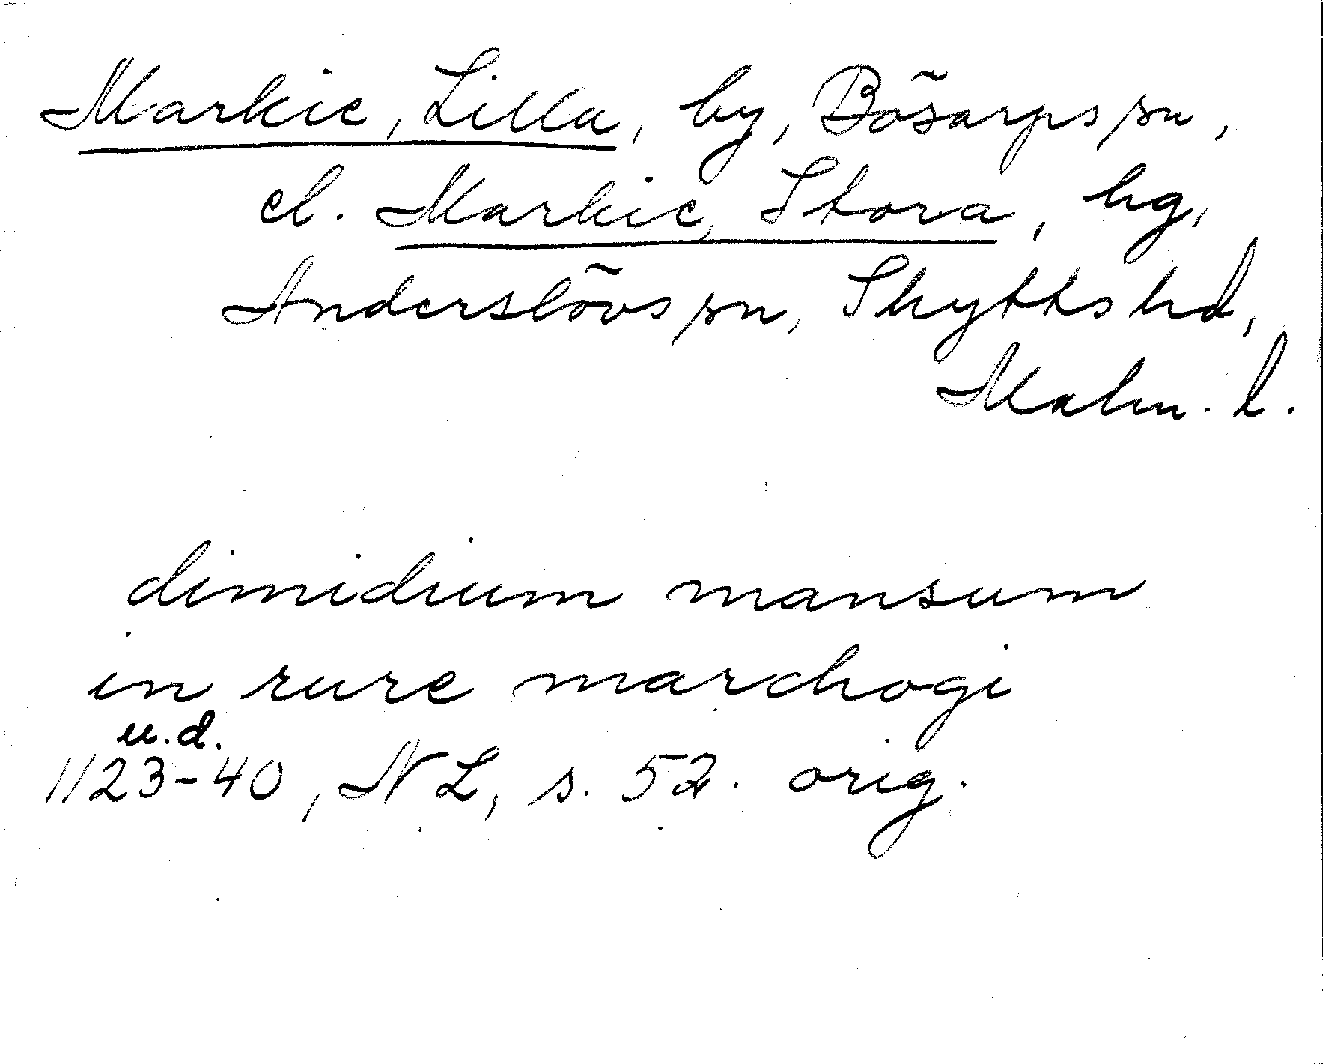 Markie, Lilla, by, Bösarps sn,
el. Markie, Stora, hg,
Anderslövs sn, Skytts hd,
Malm. l.
dimidium mansum
in rure marchogi
u.d.
1123-40, NL, s. 52. orig.